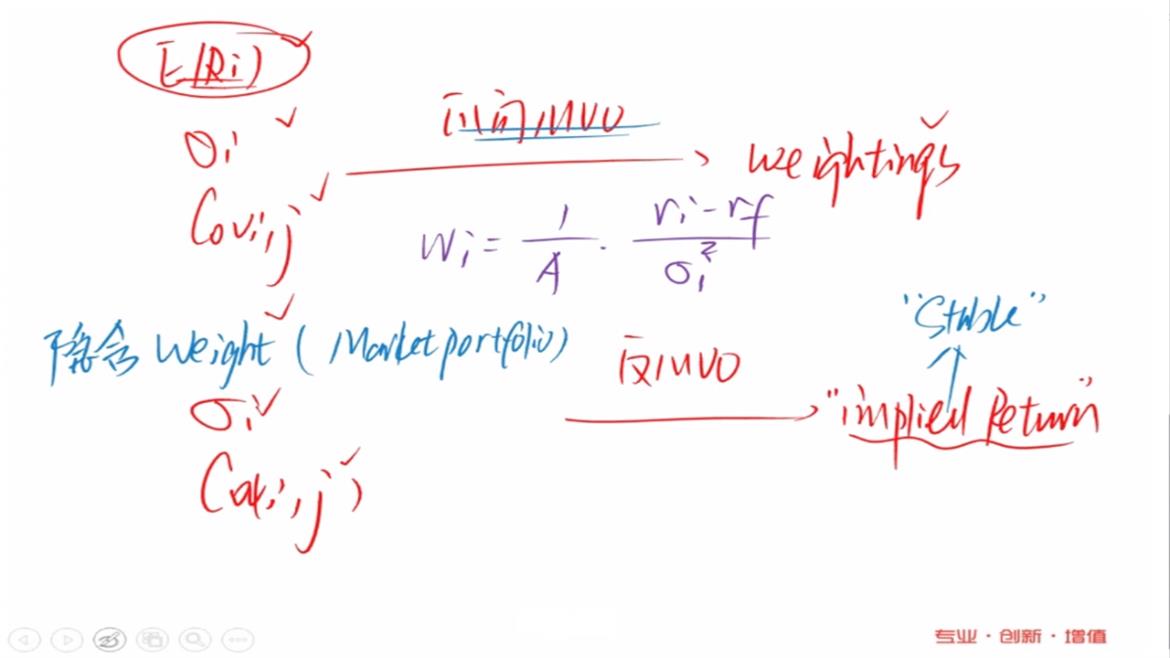 E(Ri)
σi
Covi,j
正向MVO
weightings
Wi = 1/A · ri-rf/σi²
隐含 Weight ( Market portfolio)
σi
Covi,j)
反MVO
"Stable"
"implied Return"
专业·创新·增值